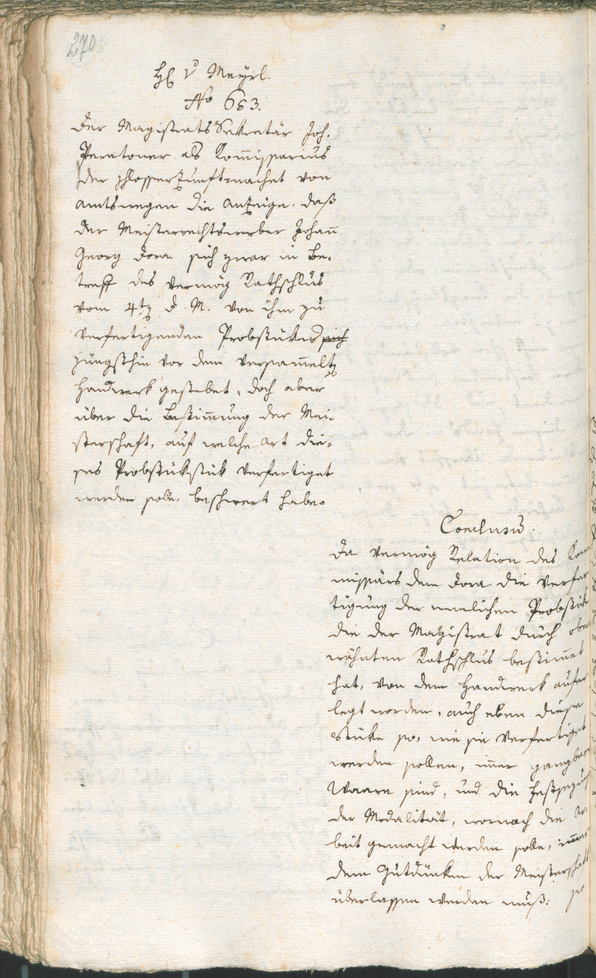 270
H v Mayrl.
No 653.
Der Magistrats Sekretär Joh.
Peratoner als Kommissarius
der Schlosserzunft machet von
Amtswegen die Anzeige, daß
der Meisterrechtswerber Johann
Georg Dora sich zwar in Be-
treff des vermög Rathschlus
vom 4t d. M. von ihm zu
verfertigenden Probstükes sich
jüngsthin vor dem versammelt
Handwerk gestellet, doch aber
über die Bestimmung der Mei-
sterschaft, auf welche Art die-
ses Probstükstük verfertiget
werden solle, beschwert habe.
Conclusum.
Da vermög Relation des Kom
missärs dem Dora die Verfer
tigung der nemlichen Probstüke
die der Magistrat durch ober
wähnten Rathschlus bestimmet
hat, von dem Handwerk aufer
legt worden, auch eben diese
Stüke so, wie sie verfertiget
werden sollen, immer gangbare
Waare sind, und die Festsezung
der Modalität, wornach die Ar
beit gemacht werden solle, immer
dem Gutdünken der Meisterschaft
überlassen werden muß: so